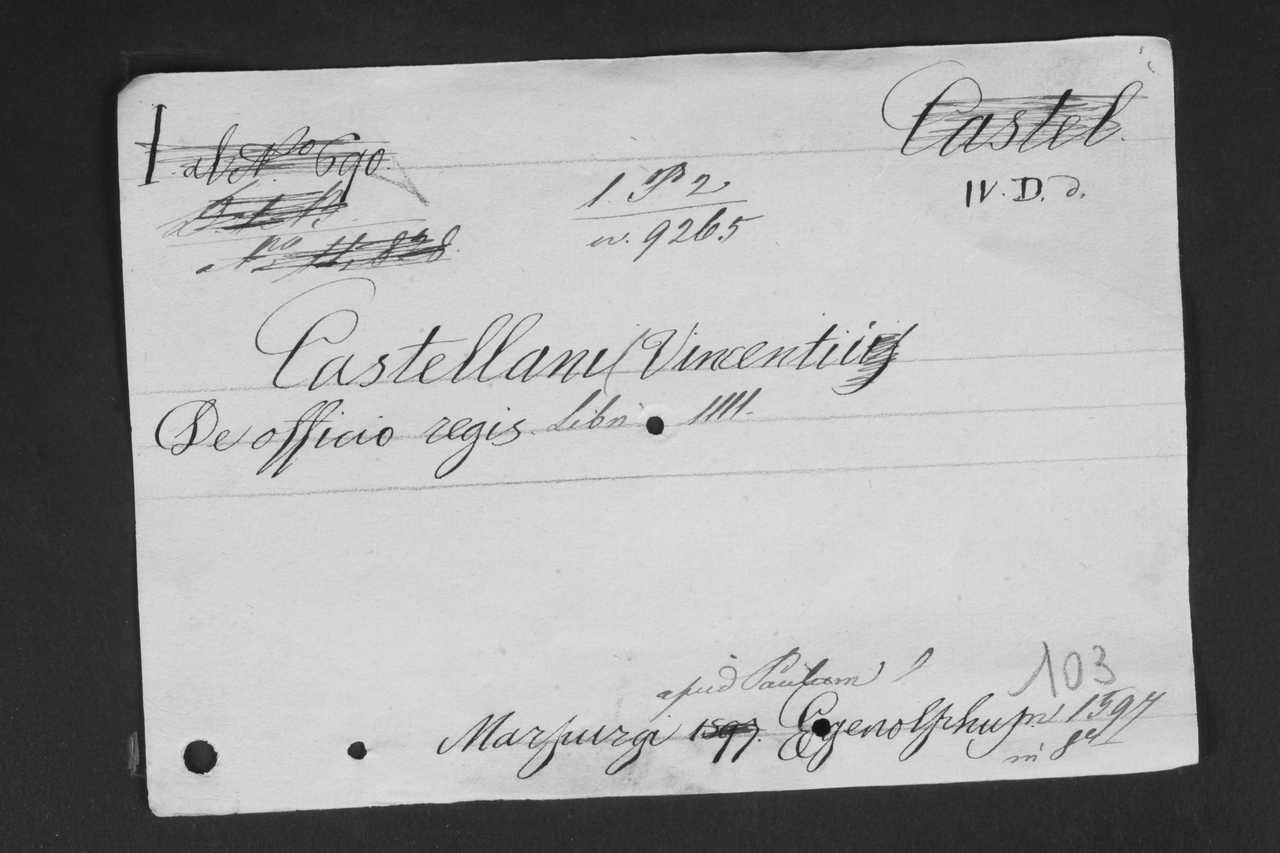 I ab N.o 690. Castel.
IV. D. d.
1 P 2
w. 9265
N.o 11,828.
Castellani (Vincentii)
De officio regis. Libri IIII.
103
apud Paulum
Marpurgi 1597. Egenolphum 1597
in 8o